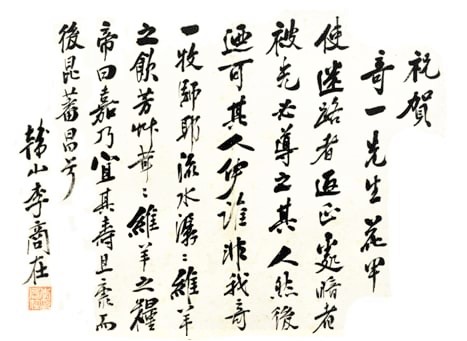 祝賀
哥一先生花甲
使迷路者返正處暗者
被光必導之其人然後
迺可其人伊誰非我哥
一牧師耶流水潺々維羊
之飲芳艸華々維羊之糧
帝曰嘉乃宜其壽且康而
後昆蕃昌兮
韓山李商在